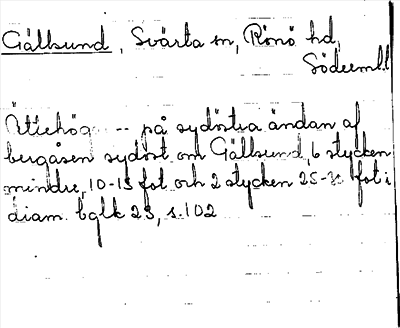 Gällsund, Svärta sn, Rönö hd,
Södermld
Ättehög -- på sydöstra ändan af
bergåsen sydost om Gällsund, 6 stycken
mindre, 10-15 fot och 2 stycken 25-30 fot i
diam. bglk 23, s. 102